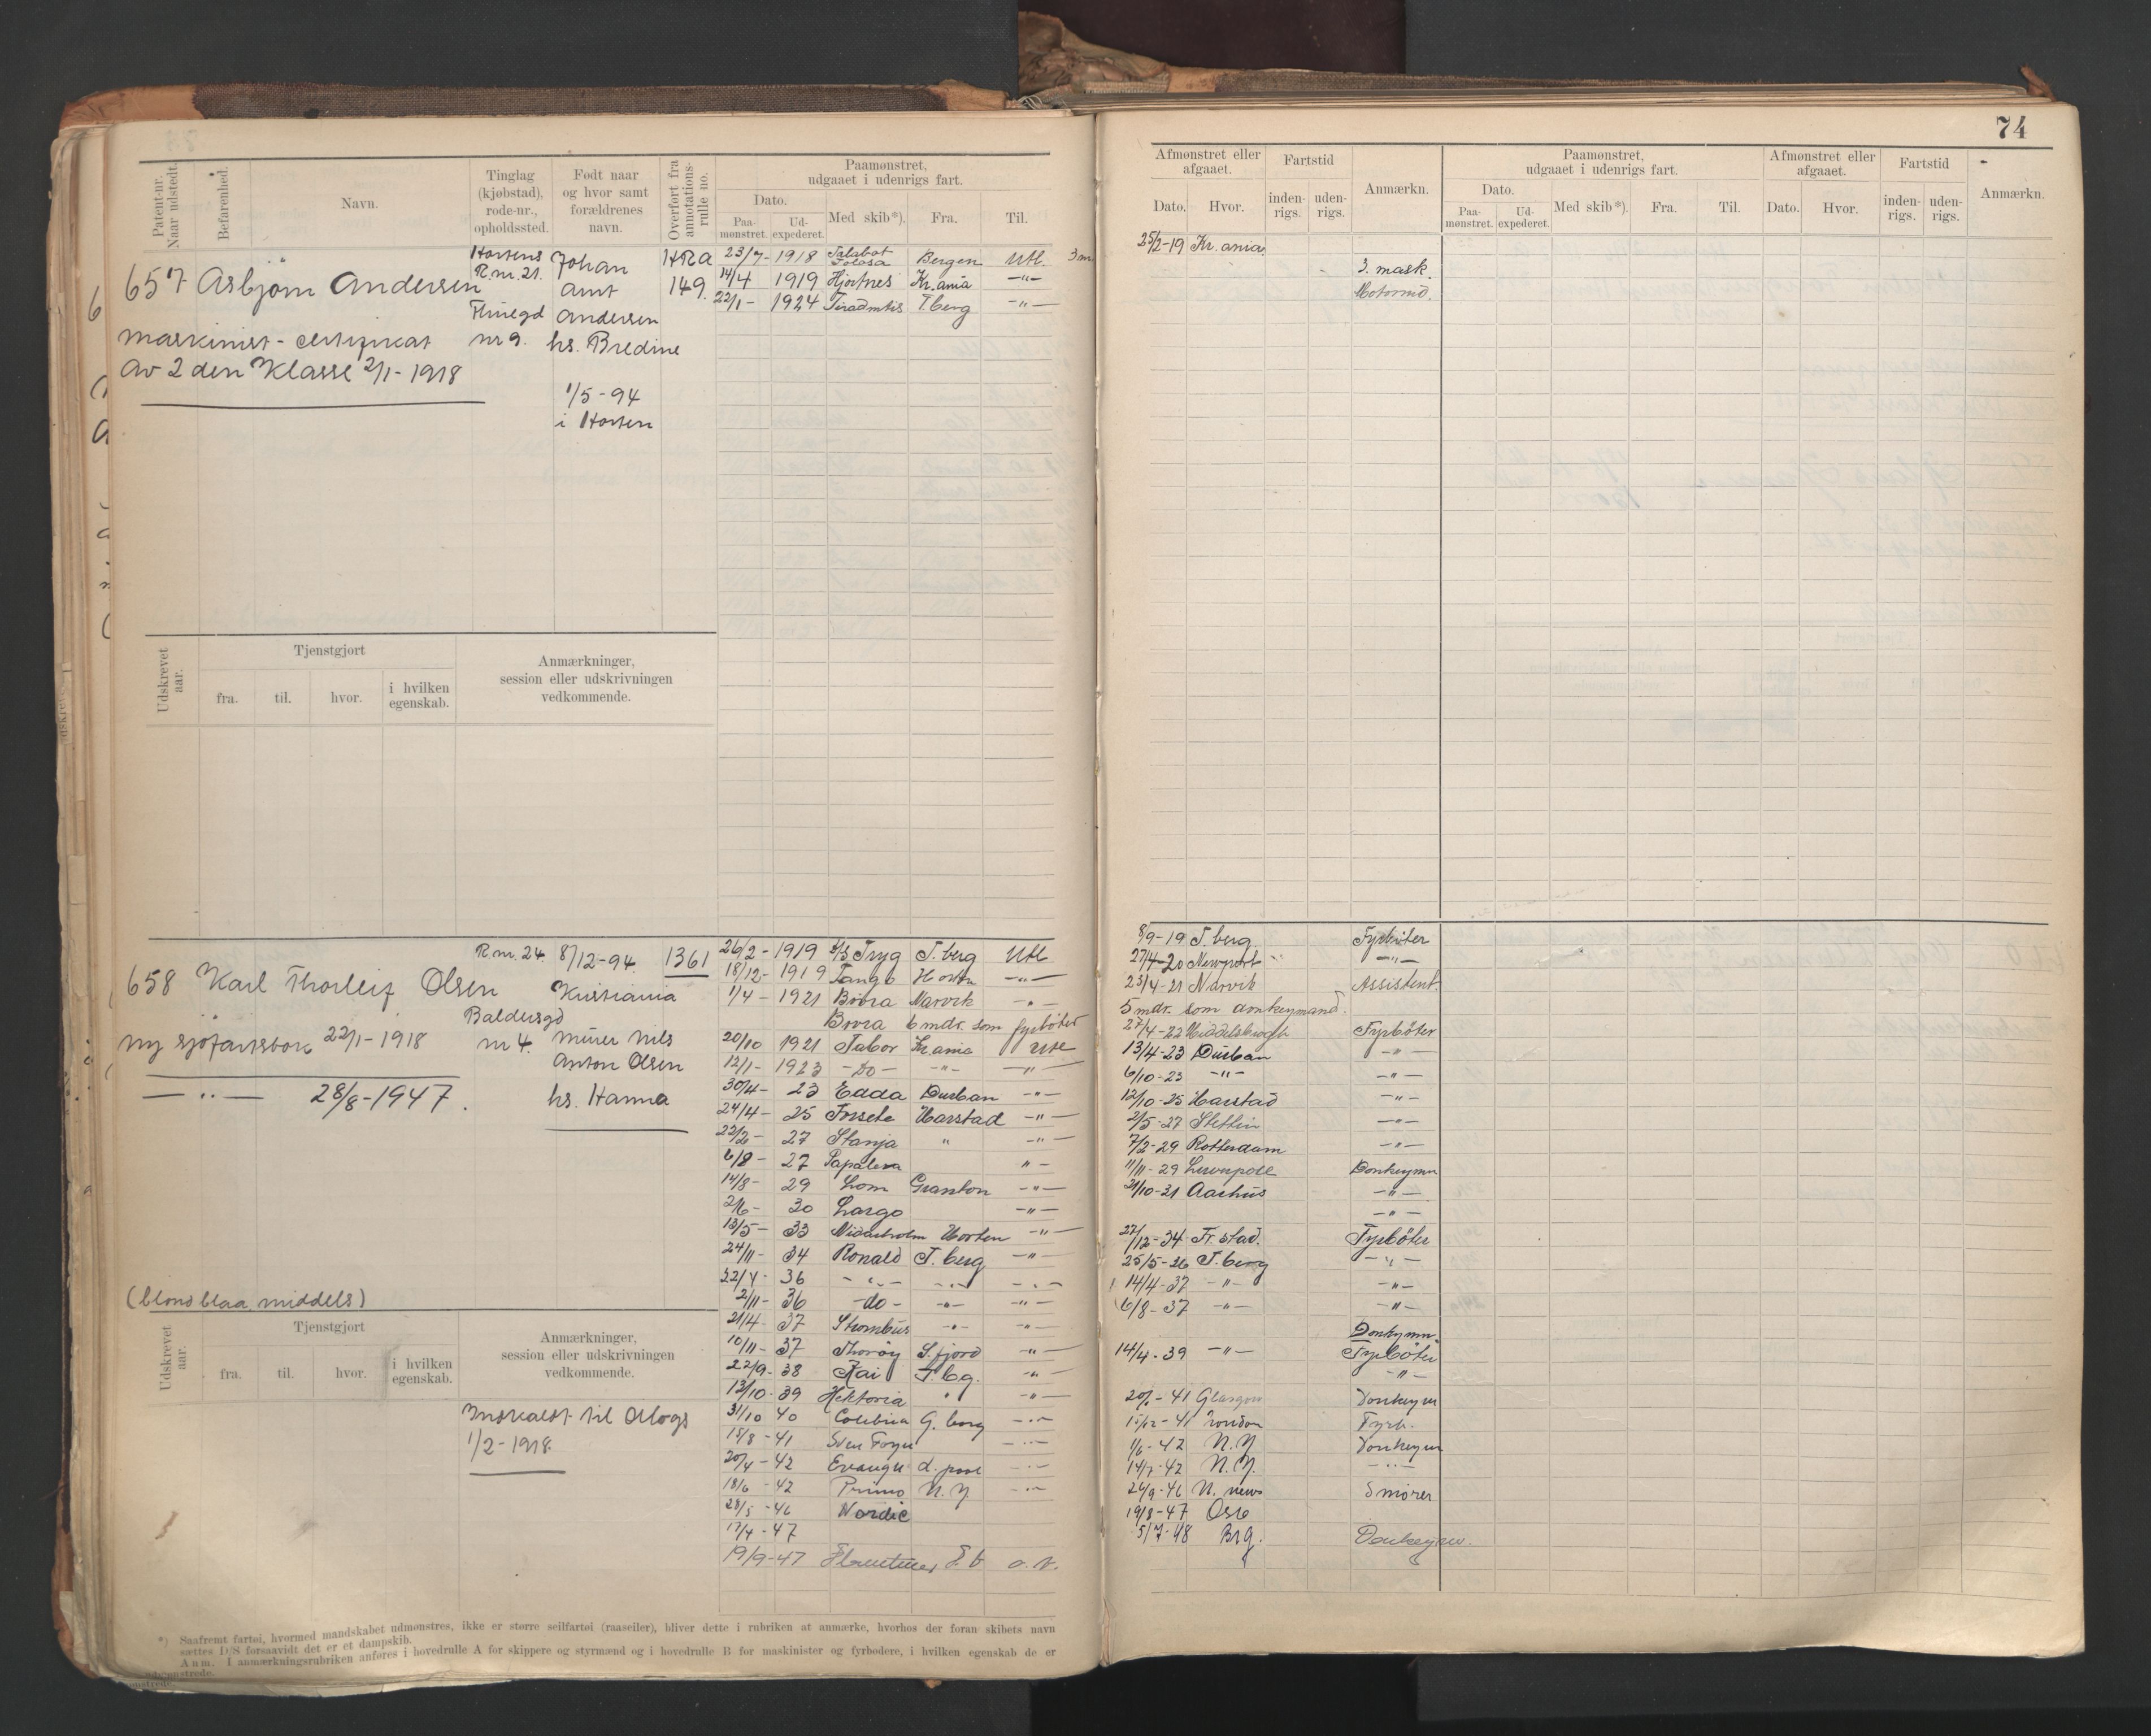 74
Patent-nr. Naar udstedt.
Befarenhed.
Navn.
Tinglag (kjøbstad), rode-nr., opholdssted.
Født naar og hvor samt forældrenes navn.
Overført fra annotations-rulle no.
Paamønstret, udgaaet i udenrigs fart.
Dato.
Paa-mønstret.
Ud-expederet.
Med skib*).
Fra.
Til.
Afmønstret eller afgaaet.
Dato.
Hvor.
Fartstid
inden-rigs.
uden-rigs.
Anmærkn.
Paamønstret, udgaaet i udenrigs fart.
Dato.
Paa-mønstret.
Ud-expederet.
Med skib*).
Fra.
Til.
Afmønstret eller afgaaet.
Dato.
Hvor.
Fartstid
inden-rigs.
uden-rigs.
Anmærkn.
657 Asbjørn Andersen
maskinist-certifikat
av 2 den Klasse 2/1-1918
Hortens
R. nr. 21.
nr 9.
Johan
Arnt
Andersen
hs. Bredine
1/5-94
i Horten
HRA
149.
23/7-1918 Bergen Utl.
14/4 1919 Hjortnes Kr.ania -"-
22/1-1924 T.berg -"-
25/2-19 Kr.ania.
3. mask.
Udskrevet aar.
Tjenstgjort
fra.
til.
hvor.
i hvilken egenskab.
Anmærkninger, session eller udskrivningen vedkommende.
658 Karl Thorleif Olsen
ny sjøfartsbok 22/1-1918
-"- 28/8-1947.
R. nr. 24.
Baldersgd
nr 4.
8/12-94.
Kristiania
Murer Nils
Anton Olsen
hs. Hanna
1361
(blond blaa middels)
26/2-1919 S/S Tryg T.berg Utl.
18/12-1919 Tango Horten -"-
1/4-1921 Bovra Narvik -"-
Bovra 6 mdr. som fyrbøter
20/10 1921 Tabor Kr.ania Utl
12/1-1923 -Do- -"- -"-
30/4-23 Edda Durban -"-
24/4-25 Harstad -"-
22/2-27 Stanja " -"-
6/8-27 "-
14/8-29 Lom Granton -"-
2/6-30 Largo -"-
13/5-33 Nidarholm Horten -"-
24/11-34 Ronald T.berg -"-
22/4-36 -"- -"- -"-
2/11-36 -do- -"- -"-
21/4-37 Strombus -"- -"-
10/11-37 Thorøy S.fjord -"-
22/9-38 Kai T.bg. -"-
13/10-39 Hektoria " -"-
31/10 40 G.borg -"-
15/8-41 Sven Foyn -"-
20/4-42 L.pool -"-
18/6-42 Primo N.Y -"-
28/5-46 Nordic
17/4-47
19/9-47
8/9-19 T.berg. Fyrbøter
27/4-20 Newport -"-
23/4-21 Narvik Assistent.
5 mdr. som donkeymand.
27/4-22 Middelsbrogh Fyrbøter
13/4-23 Durban -"-
6/10-23 -"- -"-
12/10-25 Harstad -"-
2/5-27 Stettin -"-
7/2-29 Rotterdam -"-
11/11-29 Liverpole Donkeymn
21/10-31 Aarhus -"-
-"-
27/12-34 Fr.stad. Fyrbøter
25/5-36 T.berg -"-
14/4-37 -"- -"-
6/8-37 -"- -"-
Donkymn.
14/4-39 -"- Fyrbøter
-"-
41 Glasgow Donkeym
41 London Fyrb.
1/6-42 N.Y Donkeym
14/7-42 N.Y. -"-
24/9-46 N. news Smører
19/8-47 Oslo
5/7-48 Brg. Donkeym.
Udskrevet aar.
Tjenstgjort
fra.
til.
hvor.
i hvilken egenskab.
Anmærkninger, session eller udskrivningen vedkommende.
1/2-1918.
*) Saafremt fartøi, hvormed mandskabet udmønstres, ikke er større seilfartøi (raaseiler), bliver dette i rubriken at anmærke, hvorhos der foran skibets navn
sættes D/S forsaavidt det er et dampskib.
Anm. I anmærkningsrubriken anføres i hovedrulle A for skippere og styrmænd og i hovedrulle B for maskinister og fyrbødere, i hvilken egenskab de er